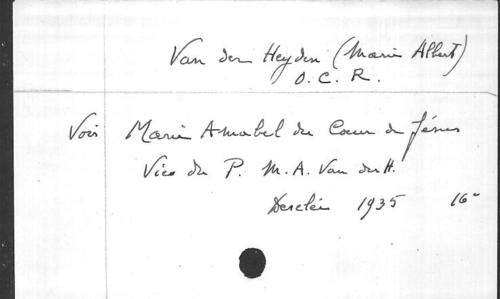 Van den Heyden (Marie Albert)
O. C. R.
Voir Marie Amabel du Coeur de Jésus
Vie du P. M. A. Van den H.
Desclée 1935 16°